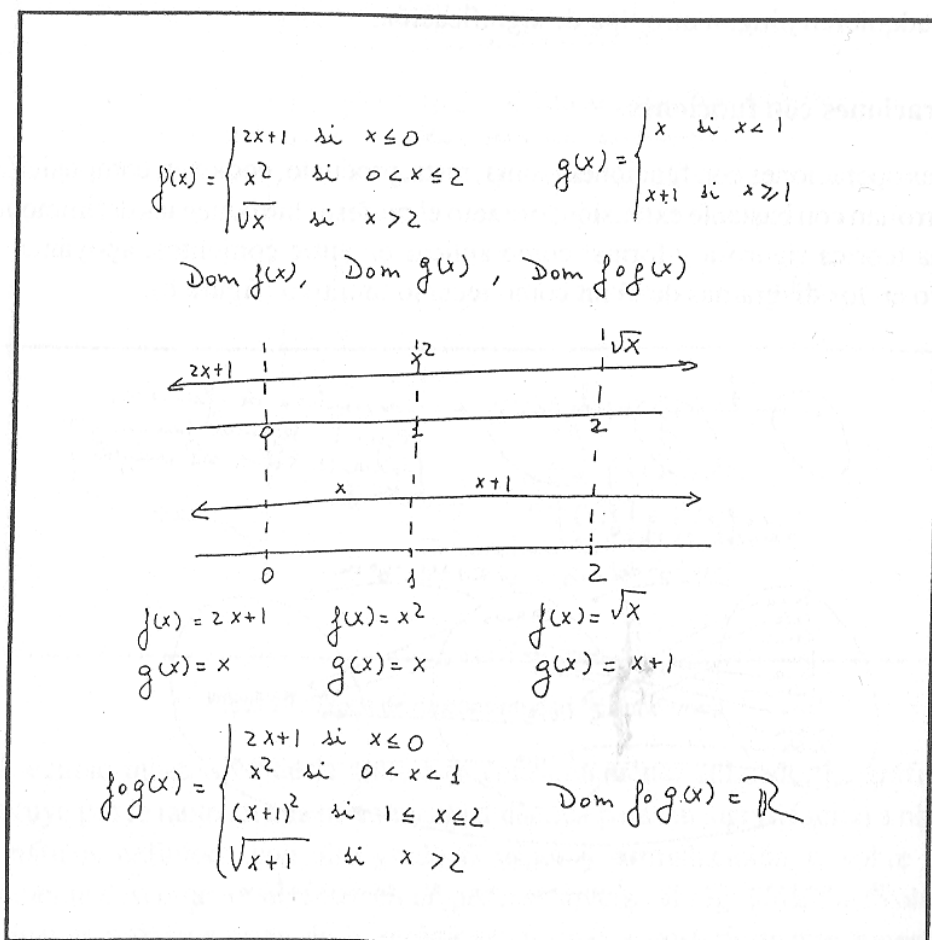 raciones con funciones
f(x) = { 2x+1 si x ≤ 0
x² si 0 < x ≤ 2
√x si x > 2
g(x) = { x si x < 1
x+1 si x ≥ 1
Dom f(x), Dom g(x), Dom f∘g(x)
2x+1 x² √x
0 1 2
x x+1
0 1 2
f(x) = 2x+1 f(x) = x² f(x) = √x
g(x) = x g(x) = x g(x) = x+1
f∘g(x) = { 2x+1 si x ≤ 0
x² si 0 < x < 1
(x+1)² si 1 ≤ x ≤ 2
√x+1 si x > 2
Dom f∘g(x) = ℝ